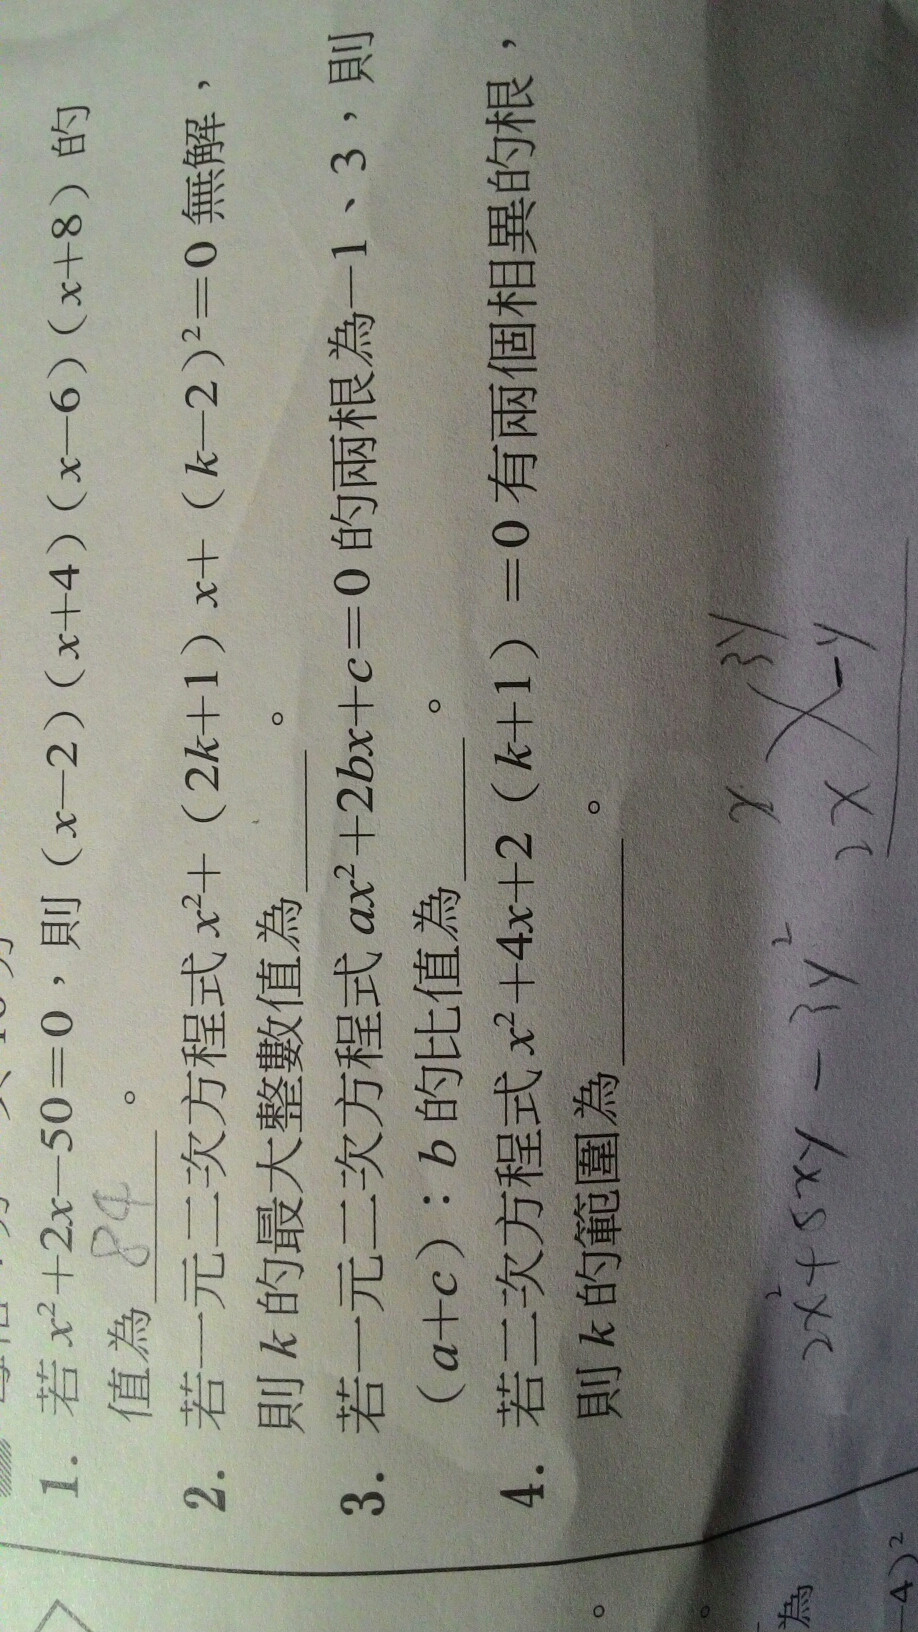 1. 若x²+2x−50=0，則(x−2)(x+4)(x−6)(x+8)的
值為 84 。
2. 若一元二次方程式x²+(2k+1)x+(k−2)²=0無解，
則k的最大整數值為＿＿＿。
3. 若一元二次方程式ax²+2bx+c=0的兩根為−1、3，則
(a+c)：b的比值為＿＿＿。
4. 若二次方程式x²+4x+2(k+1)=0有兩個相異的根，
則k的範圍為＿＿＿＿。
2x²+5xy−3y²
x 3y
2x −y
為
−4)²